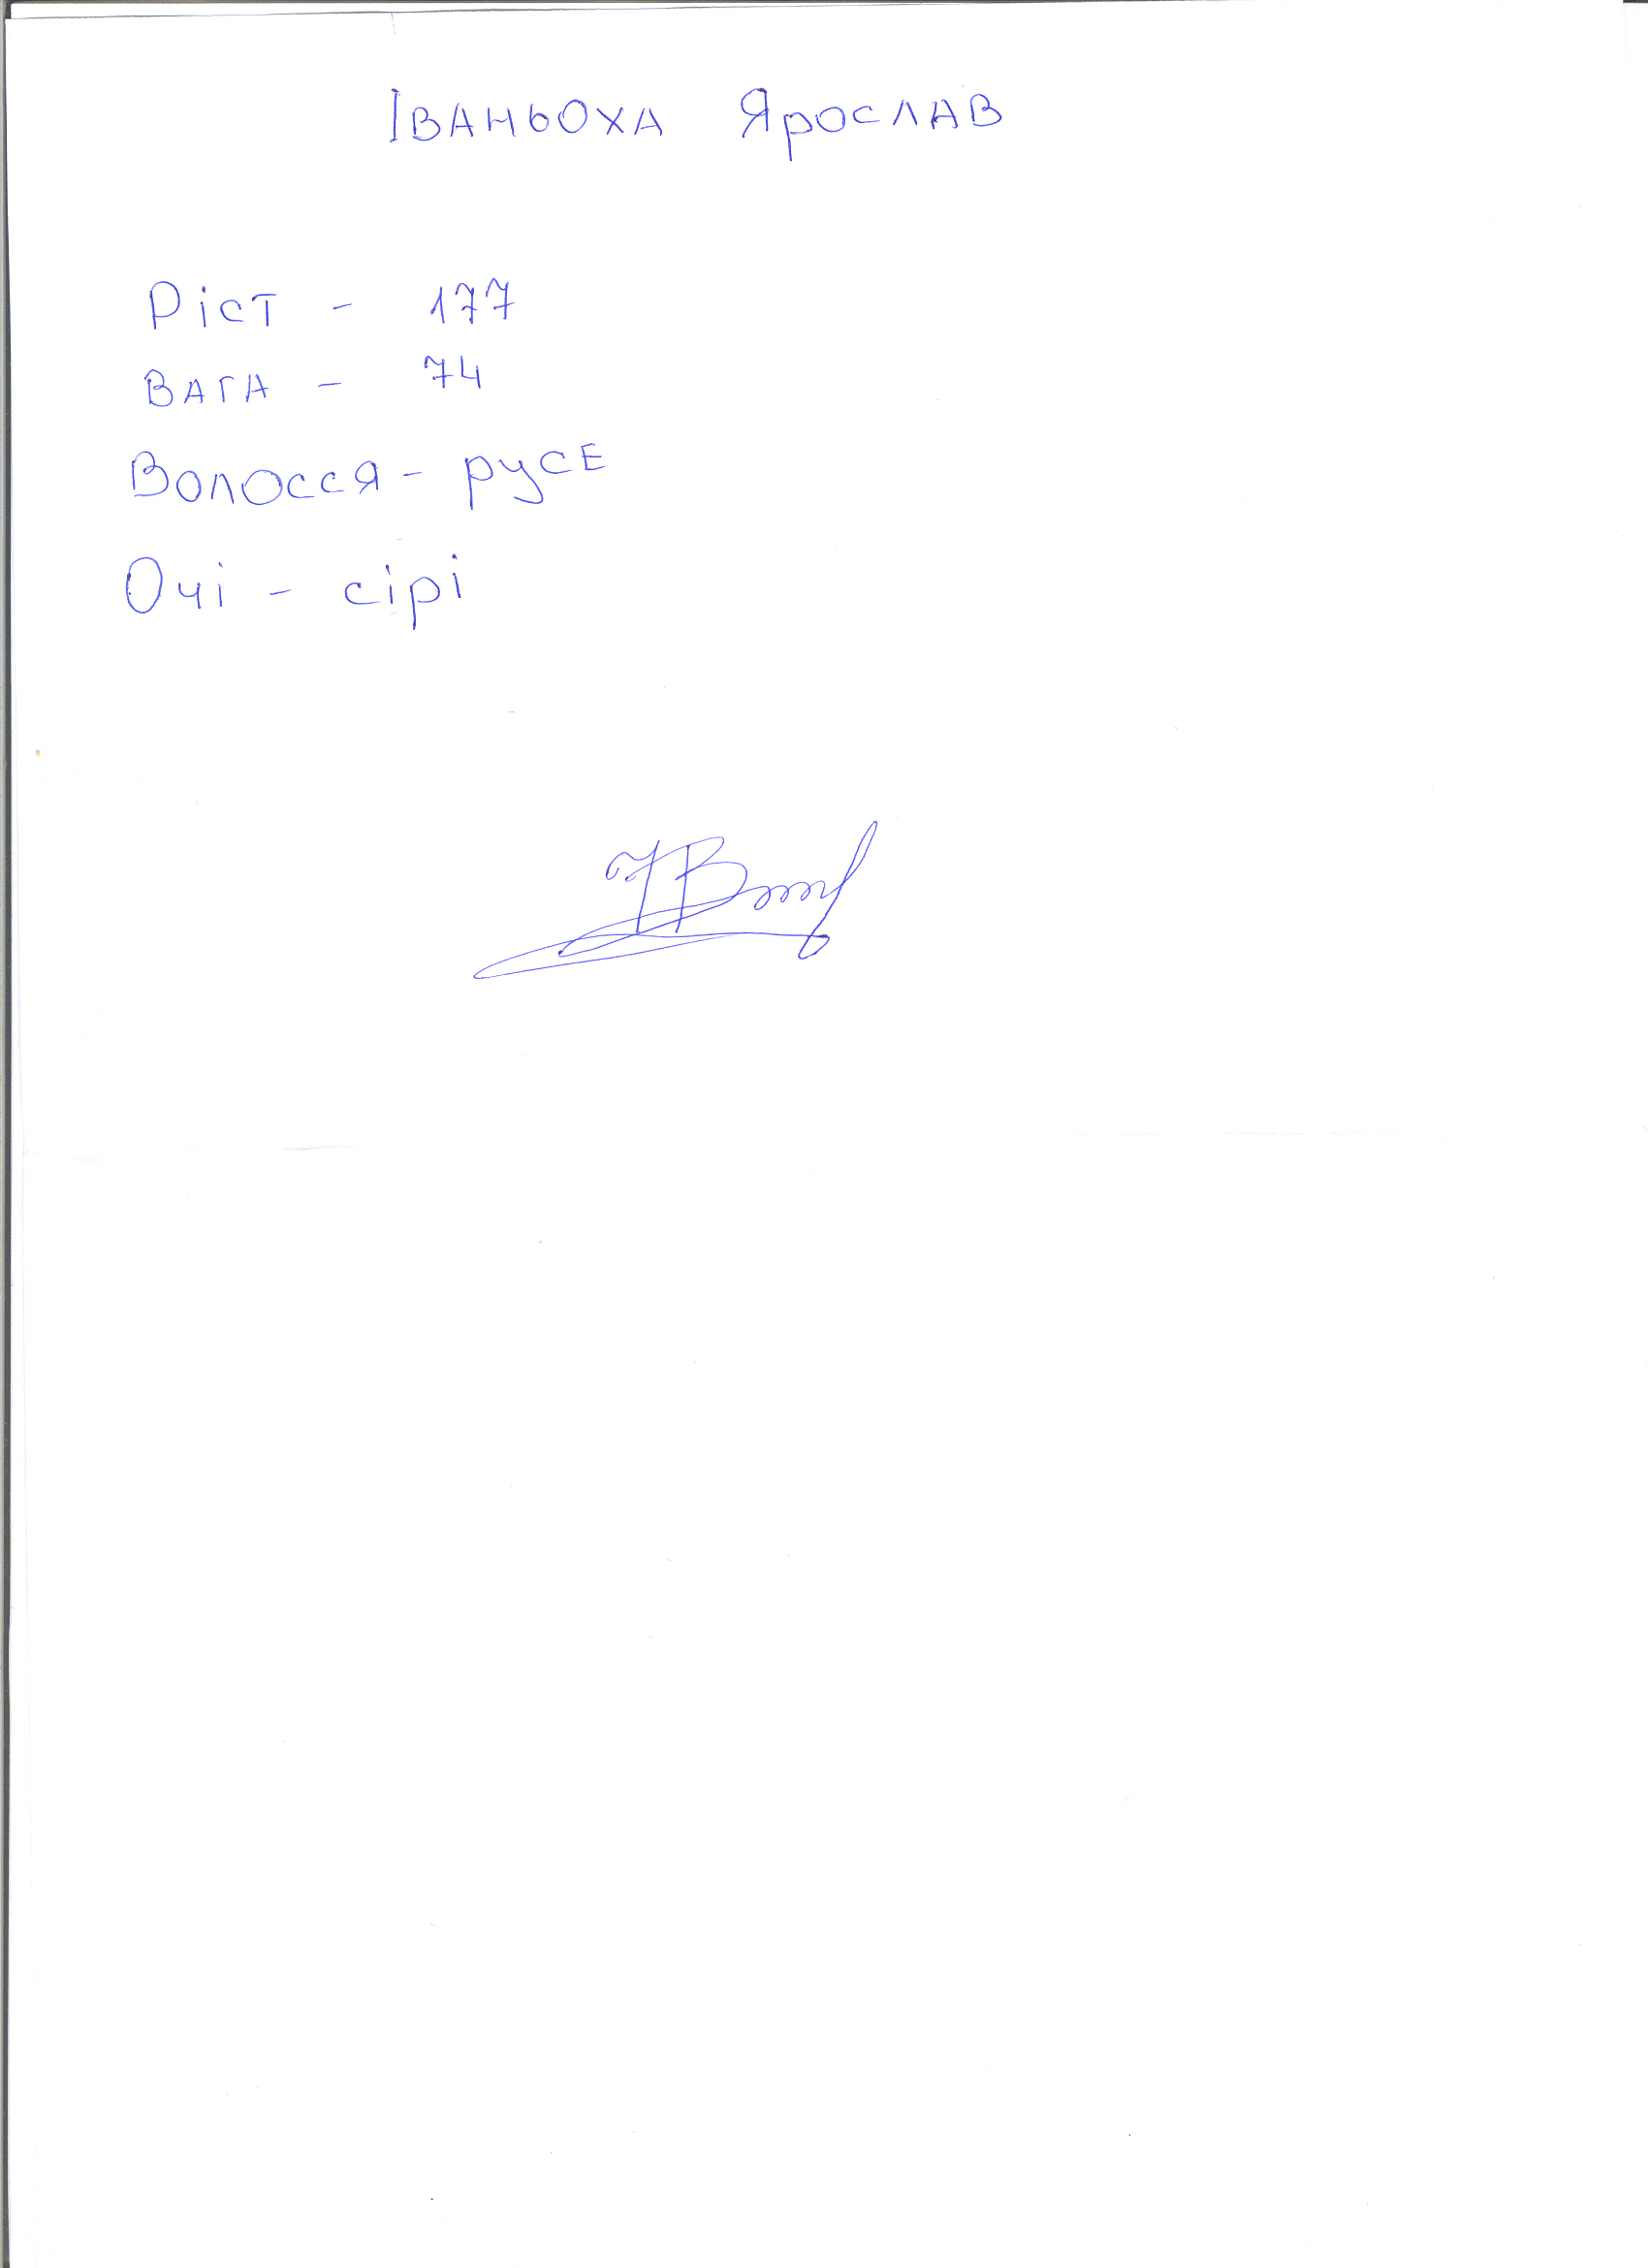 Іваньоха Ярослав
Ріст - 177
Вага - 74
Волосся - русе
Очі - сірі